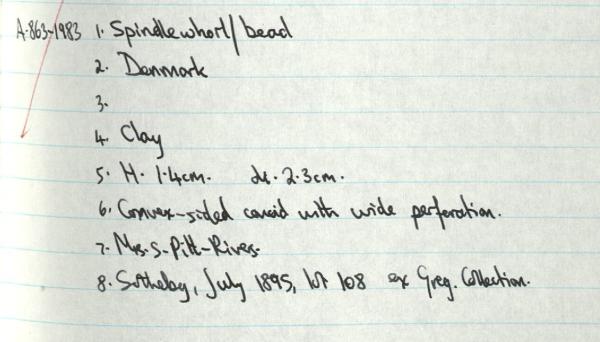 A.863-1983 1. Spindlewhorl/bead
2. Denmark
3.
4. Clay
5. H. 1.4cm. di. 2.3cm.
6. Convex-sided conoid with wide perforation.
7. Mrs. S. Pitt-Rivers.
8. Sotheby, July 1895, lot 108 ex Greg. Collection.